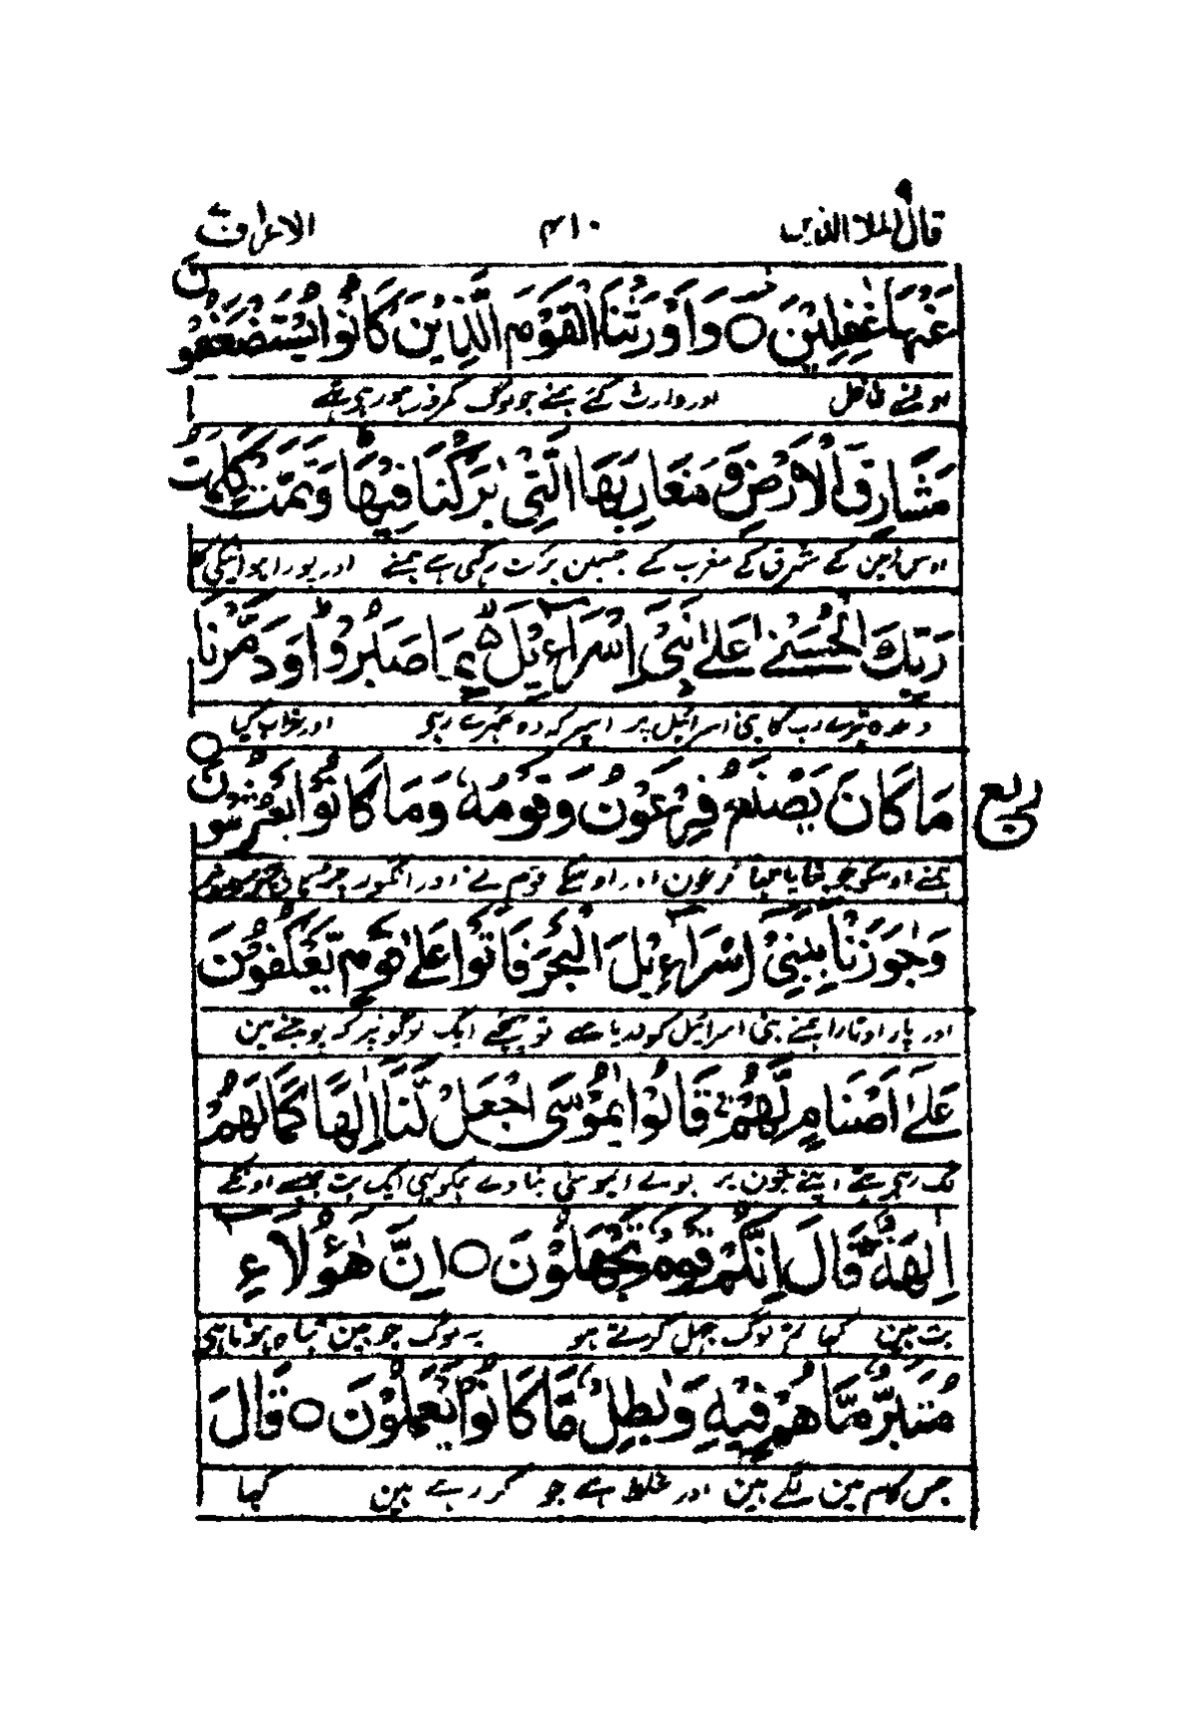 قال الملا الذین ۹ ۴۱۰ الاعراف ۷
عَنْهَا غٰفِلِيْنَ ○ وَاَوْرَثْنَا الْقَوْمَ الَّذِيْنَ كَانُوْا يُسْتَضْعَفُوْنَ
اونسے غافل اور وارث کئے ہمنے جو لوگ کمزور ہورہے تھے
مَشَارِقَ الْاَرْضِ وَمَغَارِبَهَا الَّتِيْ بٰرَكْنَا فِيْهَا وَتَمَّتْ كَلِمَتُ
اوس زمین کے مشرق کے مغرب کے جسمین برکت رکھی ہے ہمنے اور پورا ہوا نیکی کا
رَبِّكَ الْحُسْنٰى عَلٰى بَنِيْ اِسْرَآءِيْلَ بِمَا صَبَرُوْا وَدَمَّرْنَا
وعدہ تیرے رب کا بنی اسرائیل پر اسپر کہ وہ ٹھہرے رہی اور خراب کیا
مَا كَانَ يَصْنَعُ فِرْعَوْنُ وَقَوْمُهٗ وَمَا كَانُوْا يَعْرِشُوْنَ ○
ربع
ہمنے اوسکو جو بنایا تھا فرعون اور اوسکے قوم نے اور انگور
وَجٰوَزْنَا بِبَنِيْ اِسْرَآءِيْلَ الْبَحْرَ فَاَتَوْا عَلٰى قَوْمٍ يَّعْكُفُوْنَ
اور پار اوتارا ہمنے بنی اسرائیل کو دریا سے تو پہنچے ایک لوگونپر کہ پوجنے مین
عَلٰٓى اَصْنَامٍ لَّهُمْ قَالُوْا يٰمُوْسَى اجْعَلْ لَّنَآ اِلٰهًا كَمَا لَهُمْ
لگ رہے تھے اپنے بتون پر بولے ایموسی بنا دے ہمکو بھی ایک بت جیسے اونکے
اٰلِهَةٌ قَالَ اِنَّكُمْ قَوْمٌ تَجْهَلُوْنَ ○ اِنَّ هٰٓؤُلَآءِ
بت ہین کہا تم لوگ جہل کرتے ہو یہ لوگ جو ہین تباہ ہونا ہی
مُتَبَّرٌ مَّا هُمْ فِيْهِ وَبٰطِلٌ مَّا كَانُوْا يَعْمَلُوْنَ ○ قَالَ
جس کام مین لگے ہین اور غلط ہے جو کر رہے ہین کہا